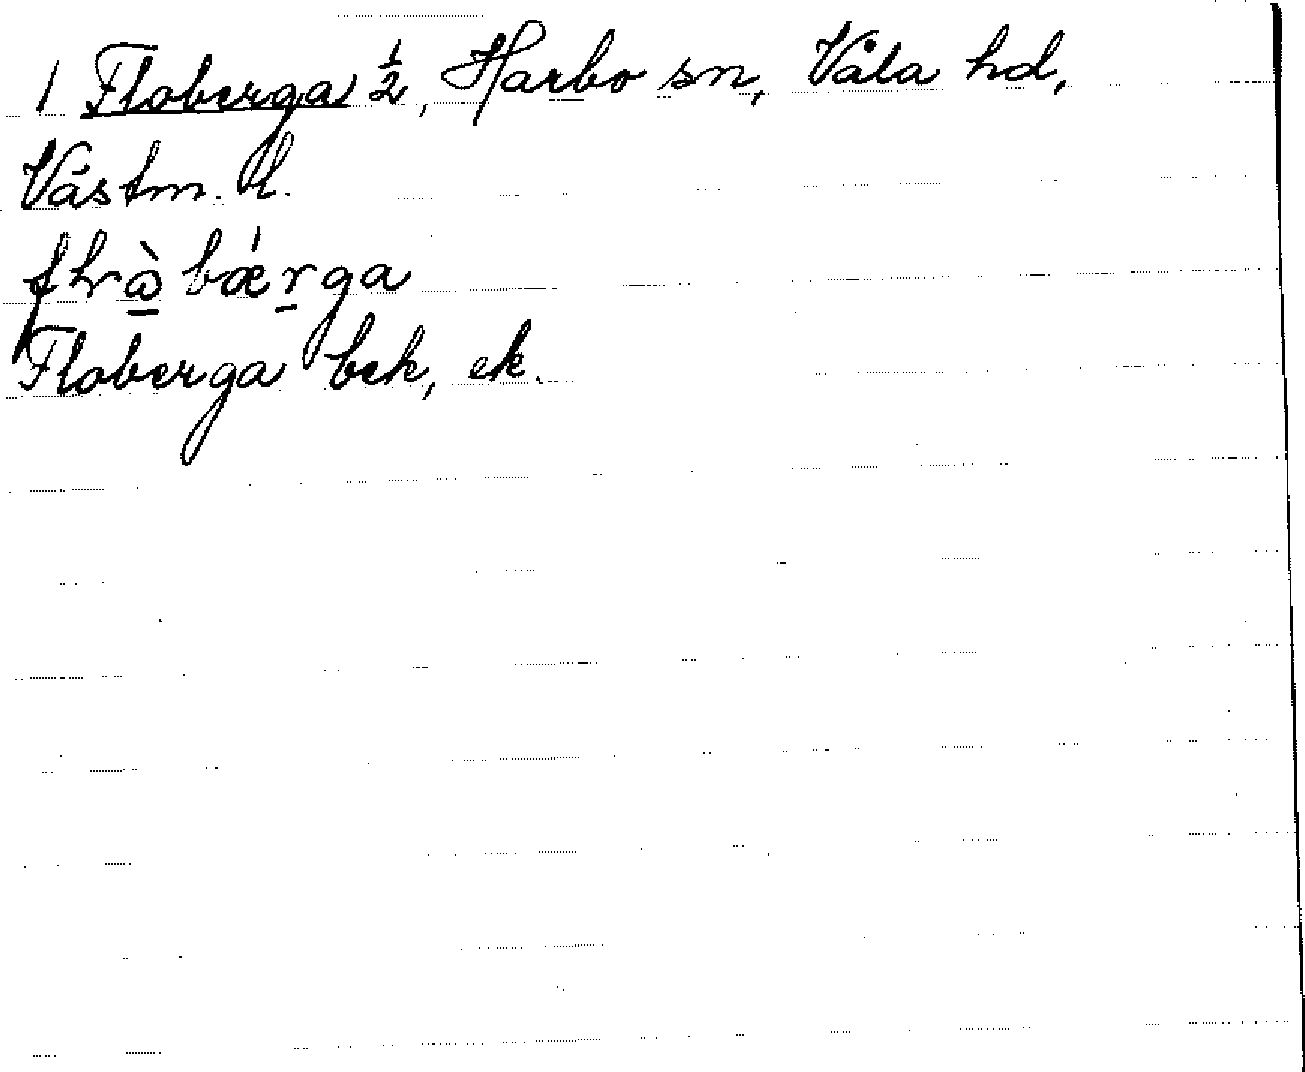 1 Floberga ½, Harbo sn, Våla hd,
Västm. l.
Floberga bek, ek.